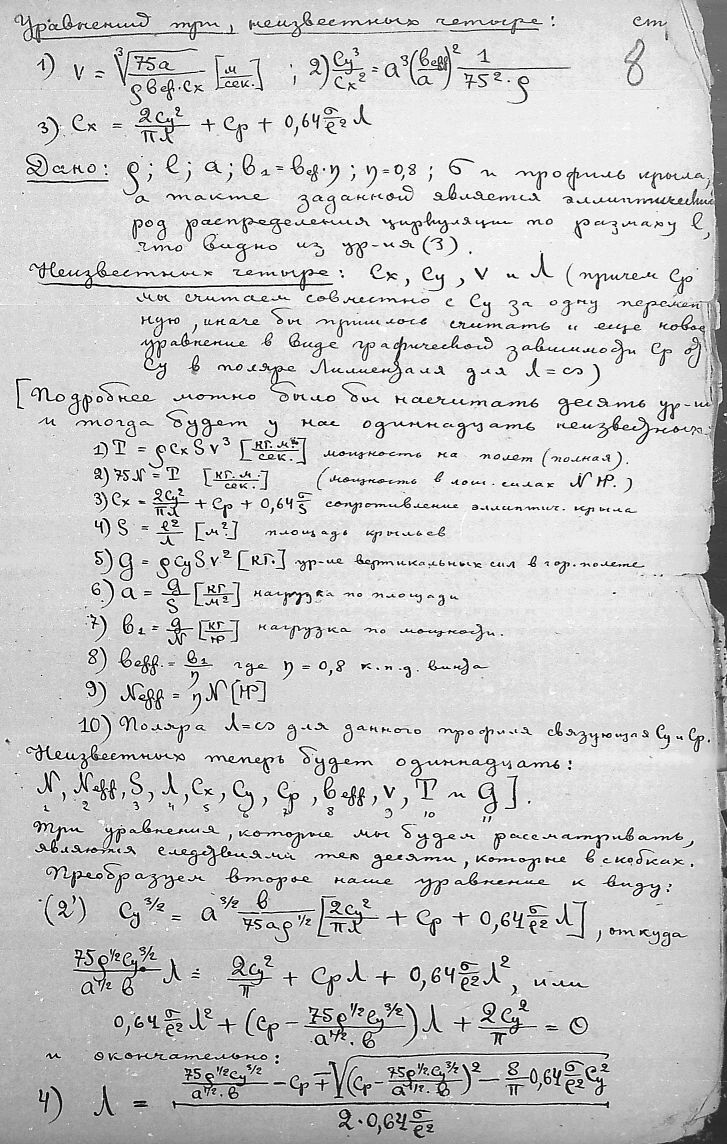 Уравнений три, неизвестных четыре: ст
8
1) V = ∛(75a / ρ beff·Cx) [м/сек.] ; 2) Cy³/Cx² = a³ (beff/a)² 1/(75²·ρ)
3) Cx = 2Cy²/πλ + Cp + 0,64 σ/ℓ² λ
Дано: ρ; ℓ; a; b₁ = beff·η; η=0,8; σ и профиль крыла,
а также заданной является эллиптический
род распределения циркуляции по размаху ℓ,
что видно из ур-ия (3).
Неизвестных четыре: Cx, Cy, V и λ (причем Cp
мы считаем совместно с Cy за одну перемен
ную, иначе бы пришлось считать и еще новое
уравнение в виде графической зависимости Cp от
Cy в поляре Лилиенталя для λ=∞)
[Подробнее можно было бы насчитать десять ур-ий
и тогда будет у нас одиннадцать неизвестных:
1) T = ρ Cx S V³ [кг.м./сек.] мощность на полет (полная).
2) 75N = T [кг.м./сек.] (мощность в лош. силах N HP.)
3) Cx = 2Cy²/πλ + Cp + 0,64 σ/S сопротивление эллиптич. крыла
4) S = ℓ²/λ [м².] площадь крыльев
5) G = ρ Cy S V² [кг.] ур-ие вертикальных сил в гор. полете
6) a = G/S [кг/м²] нагрузка по площади
7) b₁ = G/N [кг/HP] нагрузка по мощности.
8) beff. = b₁/η где η = 0,8 к.п.д. винта
9) Neff = ηN [HP]
10) Поляра λ=∞ для данного профиля связующая Cy и Cp.
Неизвестных теперь будет одиннадцать:
N, Neff, S, λ, Cx, Cy, Cp, beff, V, T и G].
1 2 3 4 5 6 7 8 9 10 11
Три уравнения, которые мы будем рассматривать,
являются следствиями тех десяти, которые в скобках.
Преобразуем второе наше уравнение к виду:
(2') Cy^3/2 = a^3/2 b/(75aρ^1/2) [2Cy²/πλ + Cp + 0,64 σ/ℓ² λ], откуда
75ρ^1/2 Cy^3/2 / (a^1/2·b) λ = 2Cy²/π + Cpλ + 0,64 σ/ℓ² λ², или
0,64 σ/ℓ² λ² + (Cp − 75ρ^1/2 Cy^3/2 / (a^1/2·b)) λ + 2Cy²/π = 0
и окончательно:
4) λ = (75ρ^1/2 Cy^3/2 / (a^1/2·b) − Cp ∓ √((Cp − 75ρ^1/2 Cy^3/2 / (a^1/2·b))² − 8/π 0,64 σ/ℓ² Cy²)) / (2·0,64 σ/ℓ²)